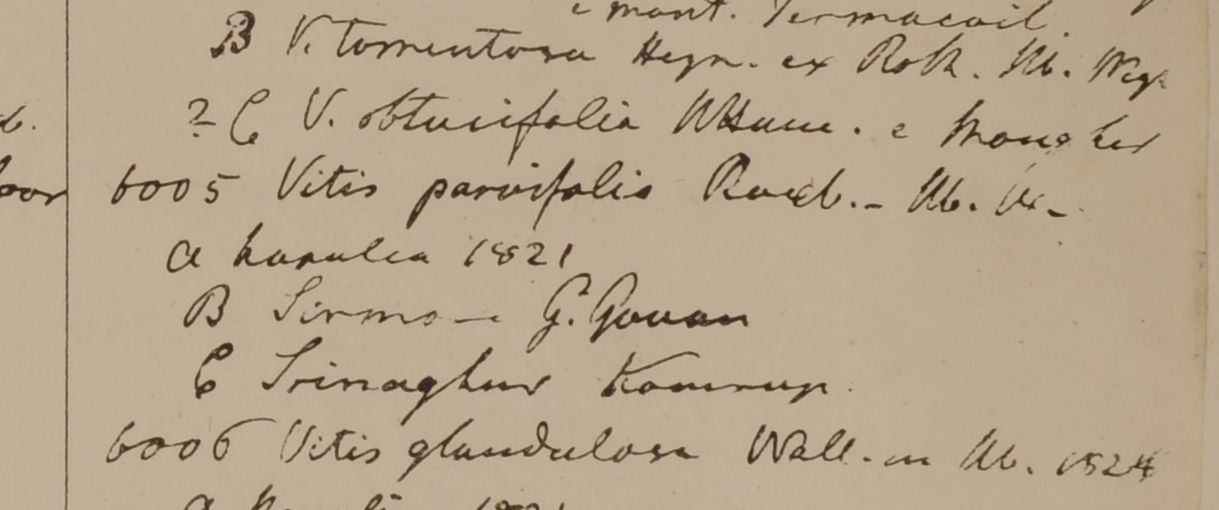 e mont. Permacoil
B V. tomentosa Heyn. ex Roth. Hb. Wigh
b.
? C V. obtusifolia WHam. e Mongher
oor
6005 Vitis parvifolia Roxb. - Hb.
a Napalia 1821
B Sirmo- G. Govan
C Srinaghur Kamrup.
6006 Vitis glandulosa Wall. in Hb. 1824
1821